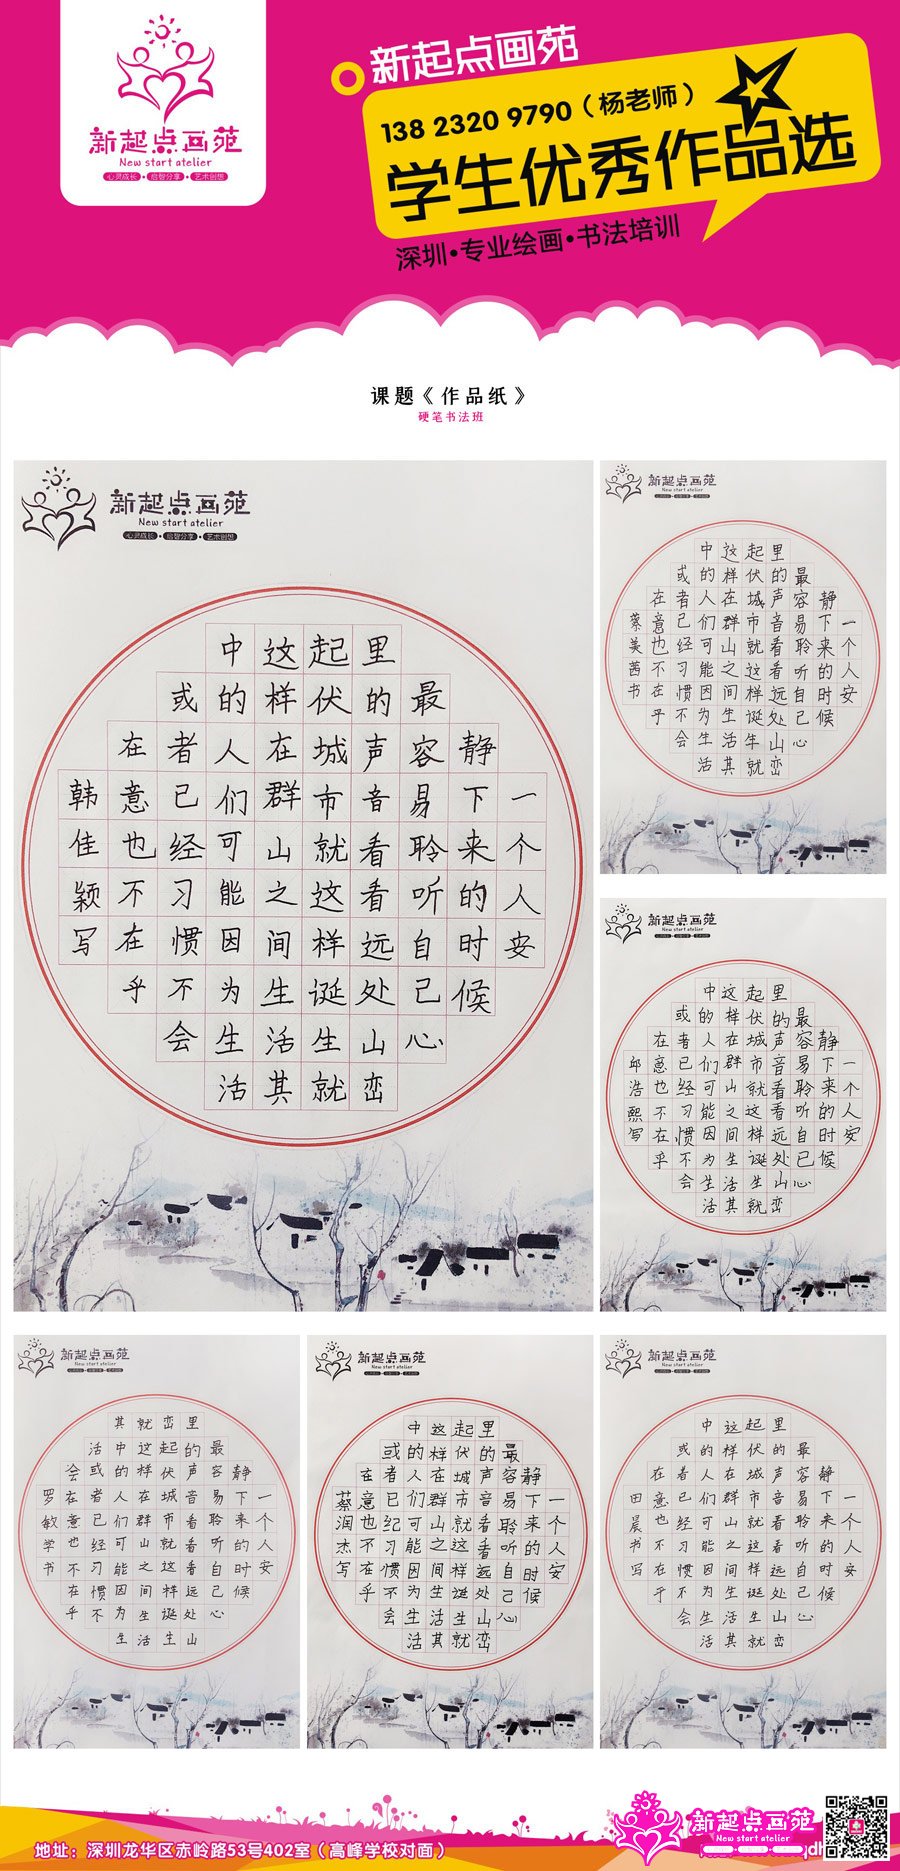 新起点画苑
New start atelier
心灵成长·启智分享·艺术创想
新起点画苑
138 2320 9790（杨老师）
学生优秀作品选
深圳·专业绘画·书法培训
课题《作品纸》
硬笔书法班
新起点画苑
New start atelier
心灵成长·启智分享·艺术创想
一个人安
静下来的时候
最容易聆听自己心
里的声音看看远处山峦
起伏城市就这样诞生就
这样在群山之间生活其
中的人们可能因为生活
或者已经习惯不会
在意也不在乎
韩佳颖写
新起点画苑
New start atelier
心灵成长·启智分享·艺术创想
一个人安
静下来的时候
最容易聆听自己心
里的声音看看远处山峦
起伏城市就这样诞生就
这样在群山之间生活其
中的人们可能因为生活
或者已经习惯不会
在意也不在乎
蔡美茜书
新起点画苑
New start atelier
心灵成长·启智分享·艺术创想
一个人安
静下来的时候
最容易聆听自己心
里的声音看看远处山峦
起伏城市就这样诞生就
这样在群山之间生活其
中的人们可能因为生活
或者已经习惯不会
在意也不在乎
邱浩熙写
新起点画苑
New start atelier
心灵成长·启智分享·艺术创想
一个人安
静下来的时候
最容易聆听自己心
里的声音看看远处山
峦起伏城市就这样诞生
就这样在群山之间生活
其中的人们可能因为生
活或者已经习惯不
会在意也不在乎
罗敏学书
新起点画苑
New start atelier
心灵成长·启智分享·艺术创想
一个人安
静下来的时候
最容易聆听自己心
里的声音看看远处山峦
起伏城市就这样诞生就
这样在群山之间生活其
中的人们可能因为生活
或者已纪习惯不会
在意也不在乎
蔡润杰写
新起点画苑
New start atelier
心灵成长·启智分享·艺术创想
一个人安
静下来的时候
最容易聆听自己心
里的声音看看远处山峦
起伏城市就这样诞生就
这样在群山之间生活其
中的人们可能因为生活
或者已经习惯不会
在意也不在乎
田晨书写
地址：深圳龙华区赤岭路53号402室（高峰学校对面）
新起点画苑
New start atelier